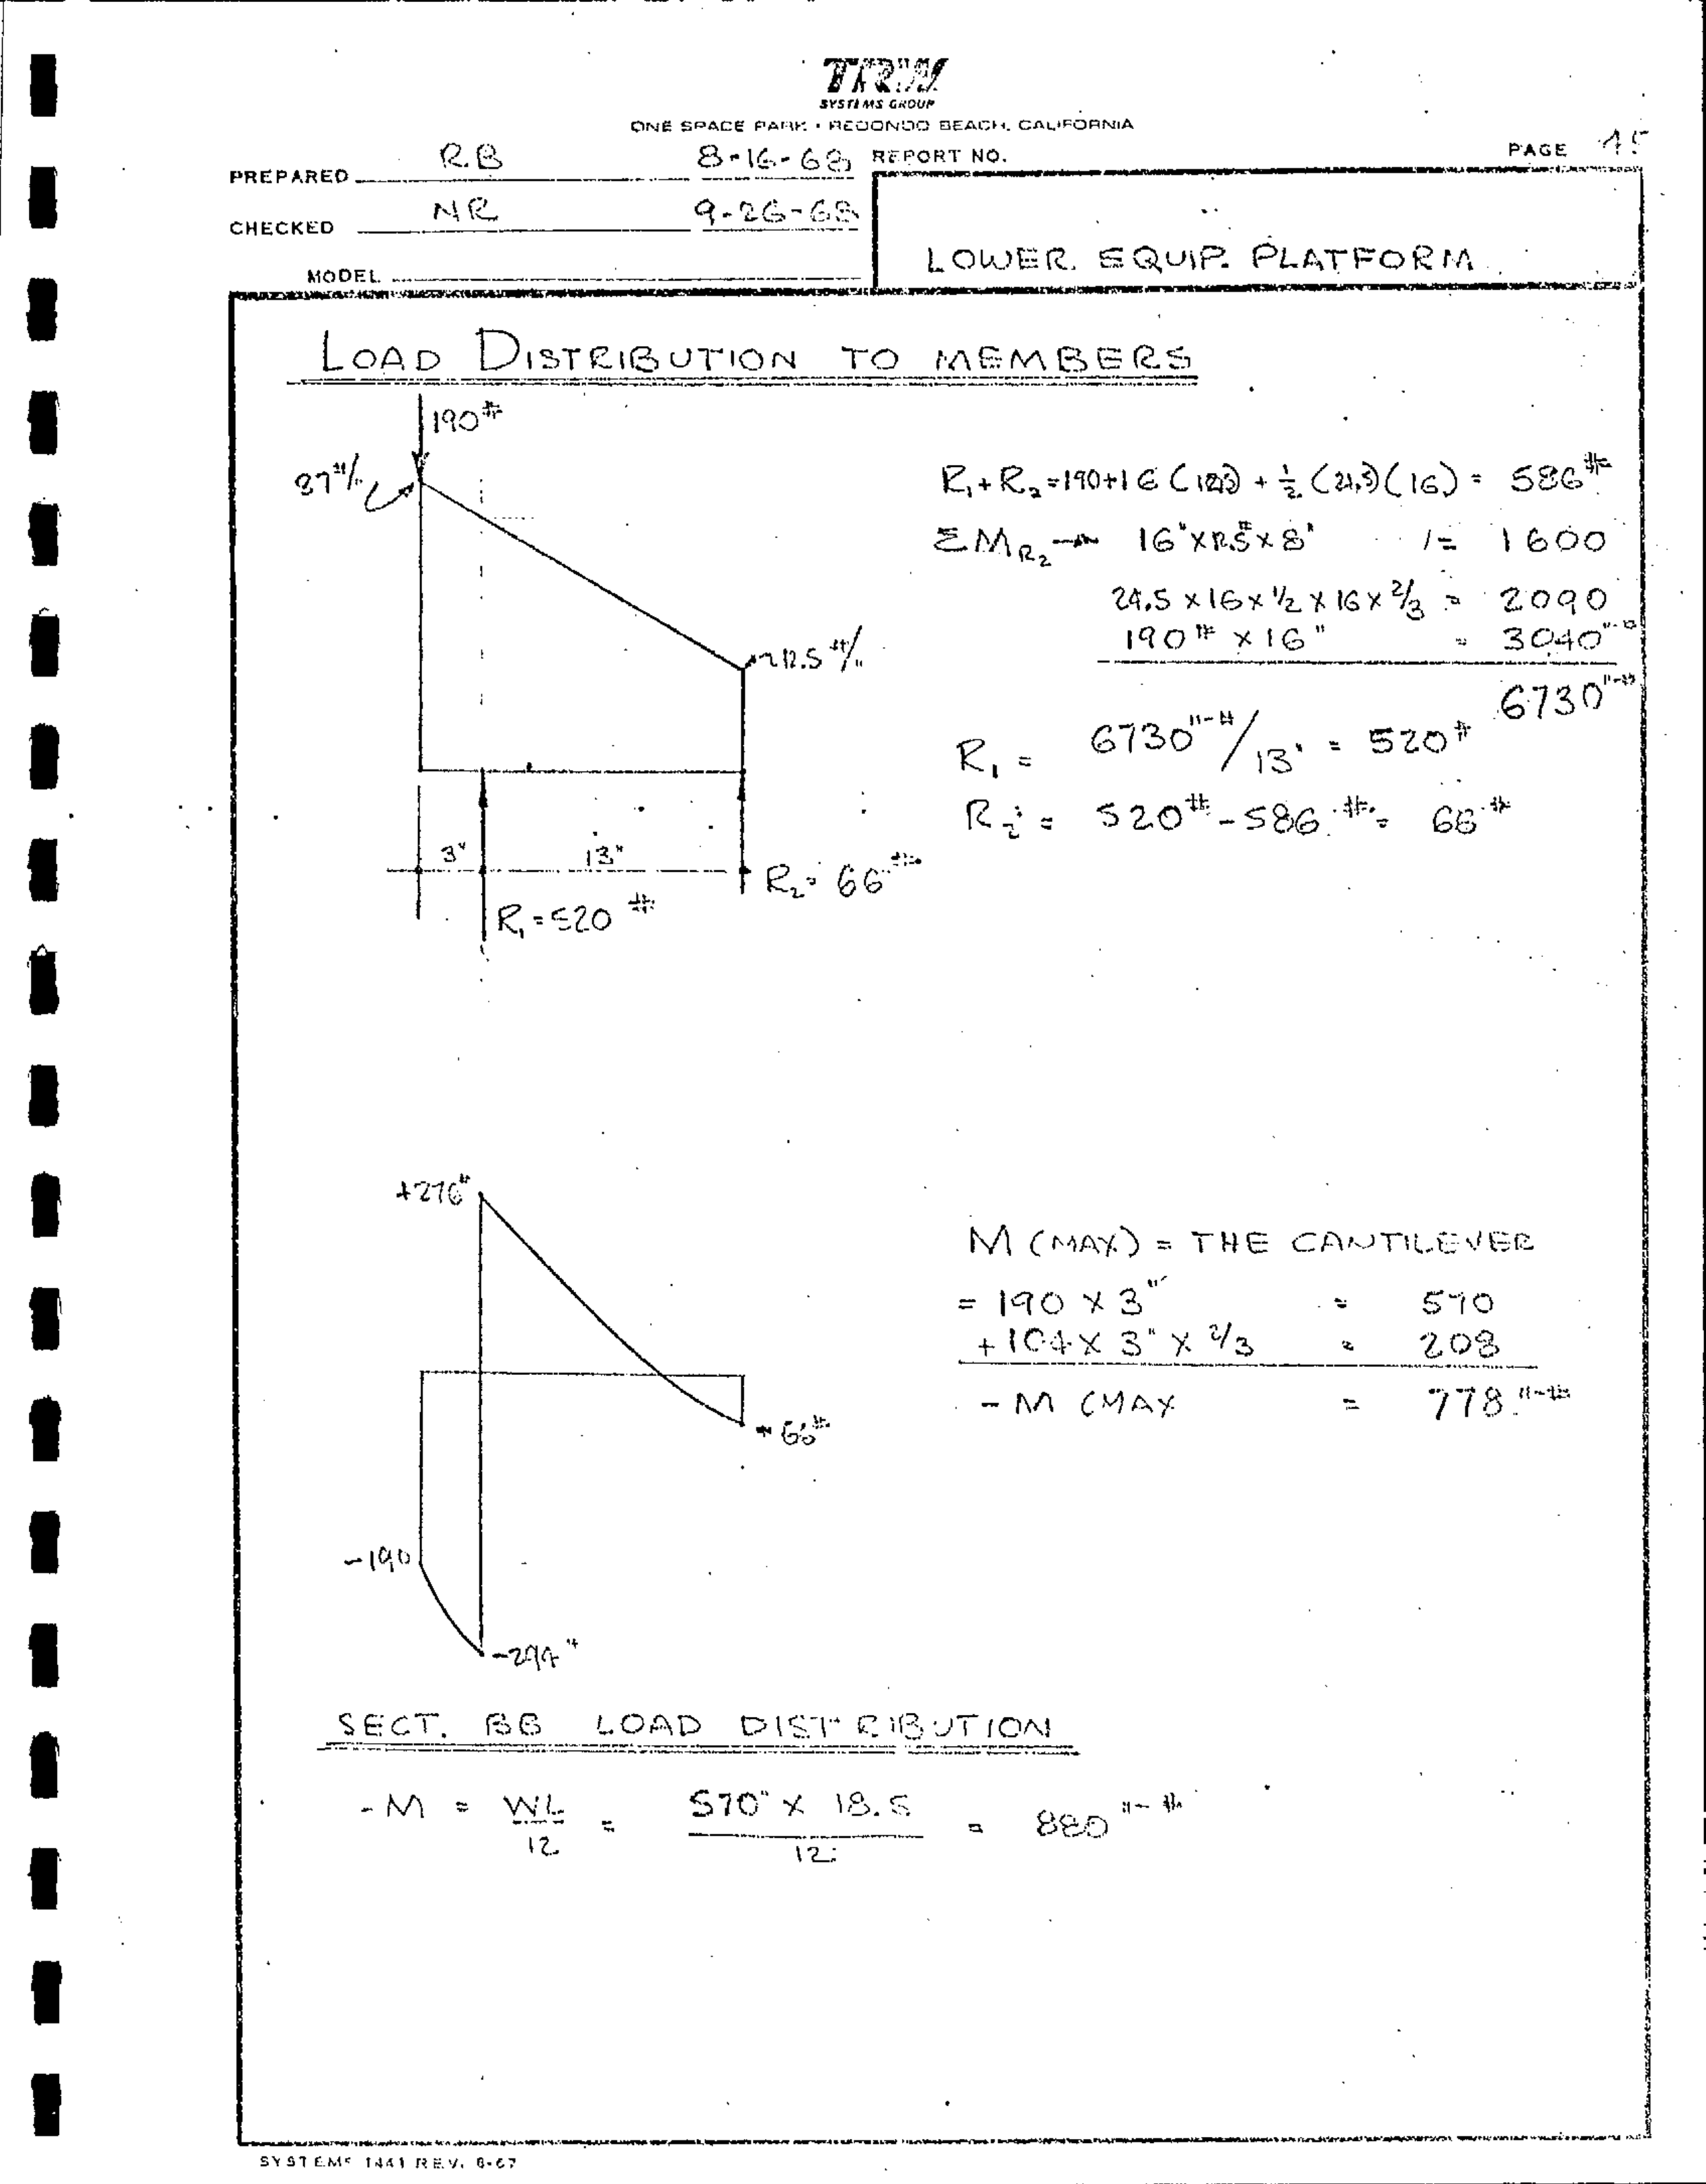 TRW
SYSTEMS GROUP
ONE SPACE PARK • REDONDO BEACH, CALIFORNIA
PREPARED RB 8-16-68 REPORT NO. PAGE 45
CHECKED NR 9-26-68
MODEL
LOWER EQUIP. PLATFORM
LOAD DISTRIBUTION TO MEMBERS
190#
37#/"
12.5#/"
3" 13"
R₂ = 66#
R₁ = 520#
R₁ + R₂ = 190 + 16 (12.5) + ½ (24.5)(16) = 586#
ΣM R₂ → 16" x 12.5# x 8" = 1600
24.5 x 16 x 1/2 x 16 x 2/3 = 2090
190# x 16" = 3040"-#
6730"-#
R₁ = 6730"-#/13" = 520#
R₂ = 520# - 586# = 66#
+276#
66#
-190
-294#
M (MAX) = THE CANTILEVER
= 190 X 3" = 570
+104 X 3" X 2/3 = 208
-M (MAX = 778"-#
SECT. BB LOAD DISTRIBUTION
-M = WL/12 = 570# X 18.5/12 = 880"-#
SYSTEMS 1441 REV. 8-67